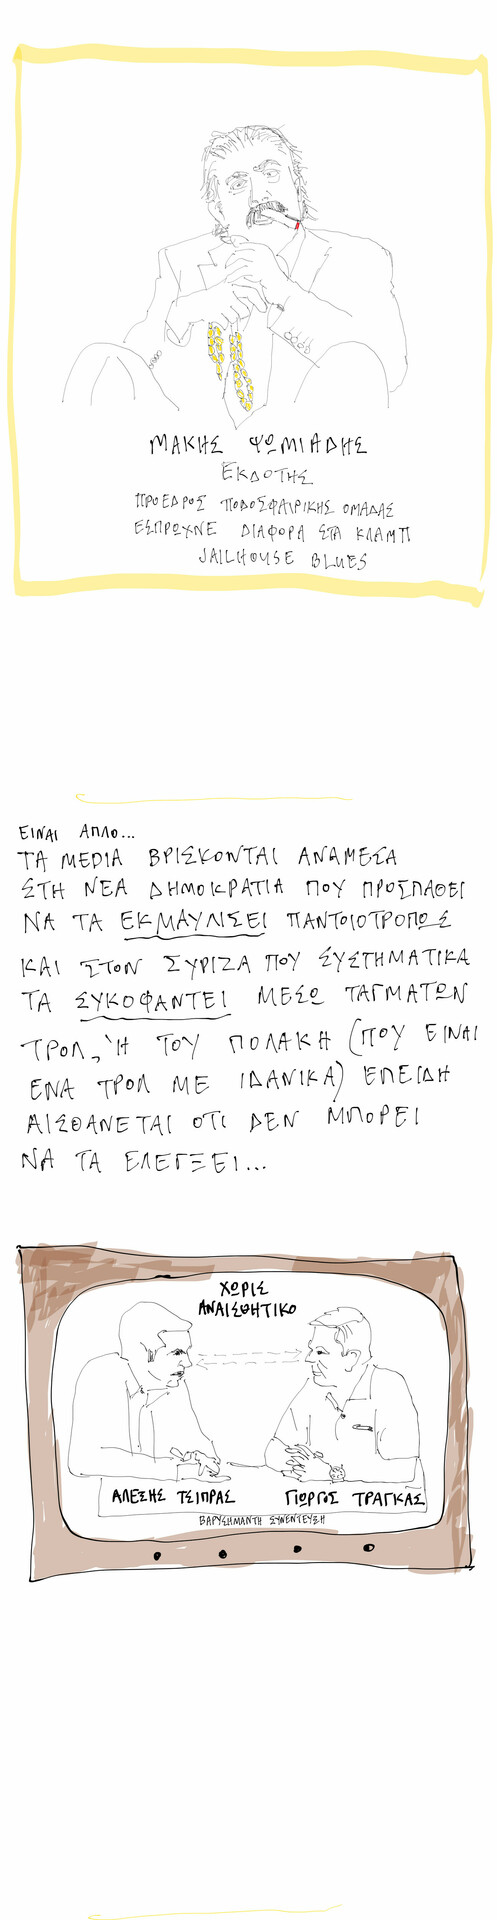 ΜΑΚΗΣ ΨΩΜΙΑΔΗΣ
ΕΚΔΟΤΗΣ
ΠΡΟΕΔΡΟΣ ΠΟΔΟΣΦΑΙΡΙΚΗΣ ΟΜΑΔΑΣ
ΕΣΠΡΩΧΝΕ ΔΙΑΦΟΡΑ ΣΤΑ ΚΛΑΜΠ
JAILHOUSE BLUES
ΕΙΝΑΙ ΑΠΛΟ...
ΤΑ MEDIA ΒΡΙΣΚΟΝΤΑΙ ΑΝΑΜΕΣΑ
ΣΤΗ ΝΕΑ ΔΗΜΟΚΡΑΤΙΑ ΠΟΥ ΠΡΟΣΠΑΘΕΙ
ΝΑ ΤΑ ΕΚΜΑΥΛΙΣΕΙ ΠΑΝΤΟΙΟΤΡΟΠΩΣ
ΚΑΙ ΣΤΟΝ ΣΥΡΙΖΑ ΠΟΥ ΣΥΣΤΗΜΑΤΙΚΑ
ΤΑ ΣΥΚΟΦΑΝΤΕΙ ΜΕΣΩ ΤΑΓΜΑΤΩΝ
ΤΡΟΛ, Ή ΤΟΥ ΠΟΛΑΚΗ (ΠΟΥ ΕΙΝΑΙ
ΕΝΑ ΤΡΟΛ ΜΕ ΙΔΑΝΙΚΑ) ΕΠΕΙΔΗ
ΑΙΣΘΑΝΕΤΑΙ ΟΤΙ ΔΕΝ ΜΠΟΡΕΙ
ΝΑ ΤΑ ΕΛΕΓΞΕΙ...
ΧΩΡΙΣ
ΑΝΑΙΣΘΗΤΙΚΟ
ΑΛΕΞΗΣ ΤΣΙΠΡΑΣ ΓΙΩΡΓΟΣ ΤΡΑΓΚΑΣ
ΒΑΡΥΣΗΜΑΝΤΗ ΣΥΝΕΝΤΕΥΞΗ